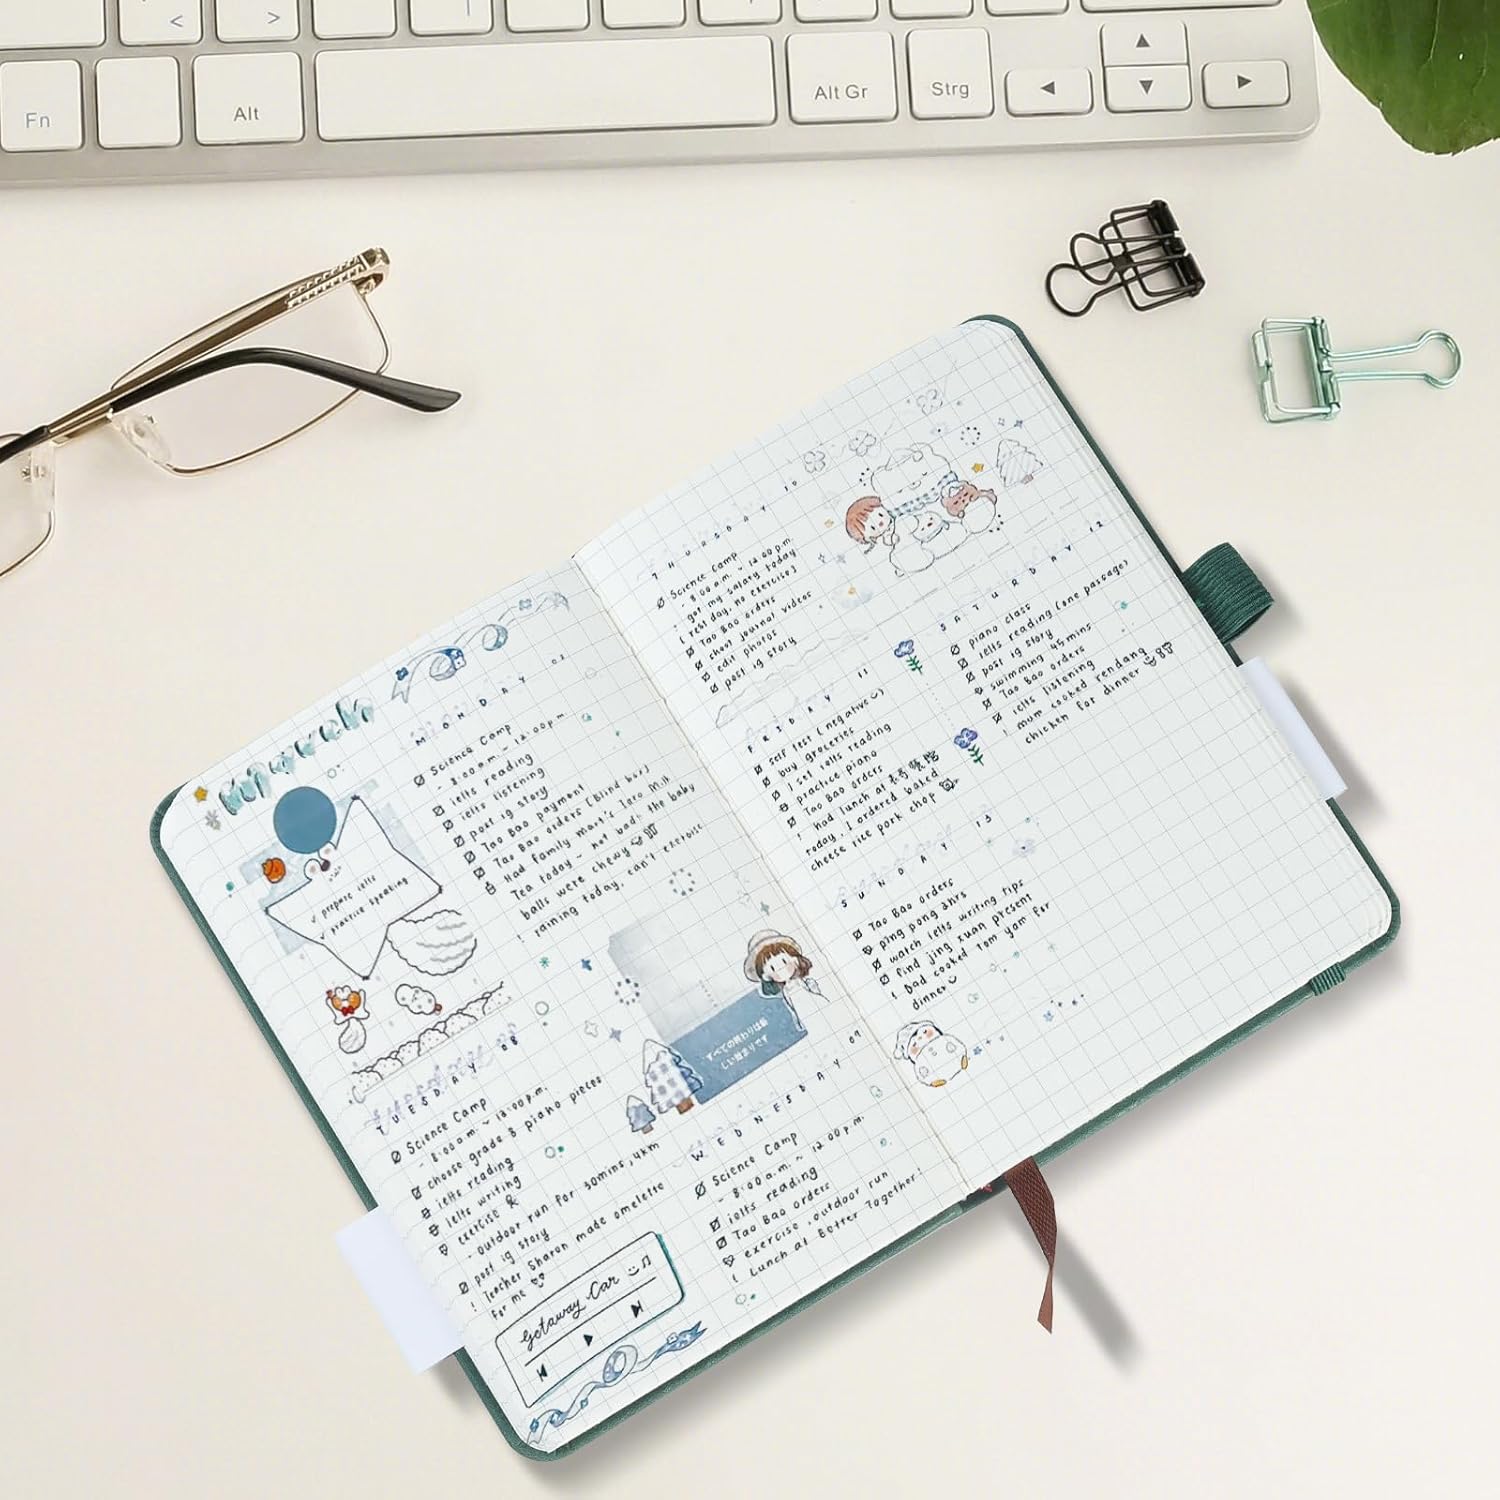 Fn
<
Alt
>
Alt Gr
Strg
MONDAY
Science Camp
- 8:00a.m. ~ 12:00p.m
ielts reading
ielts listening
post ig story
Tao Bao payment
Tao Bao orders [Blind box]
Had Family Mart's Taro Milk
Tea today ~ not bad: the baby
balls were chewy
! raining today, can't exercise.
✓ prepare ielts
✓ practice speaking
TUESDAY 08
Science Camp
- 8:00a.m. ~ 12:00p.m.
choose grade 8 piano pieces
ielts reading
ielts writing
exercise &
- outdoor run for 30mins, 4km
post ig story
! Teacher Sharon made omelette
for me
Getaway Car
すべての終わりは新
しい始まりです
WEDNESDAY 09
Science Camp
- 8:00a.m. ~ 12:00p.m.
ielts reading
Tao Bao orders
exercise, outdoor run
! Lunch at Better Together!
THURSDAY 10
Science Camp
- 8:00a.m. ~ 12:00p.m.
- got my salary today
( rest day, no exercise)
Tao Bao orders
shoot journal videos
edit photos
post ig story
FRIDAY 11
self test (negative)
buy groceries
1 set ielts reading
practice piano
Tao Bao orders
! had lunch at
today, I ordered baked
cheese rice pork chop
SATURDAY 12
piano class
ielts reading (one passage)
post ig story
swimming 45mins
Tao Bao orders
ielts listening
! mum cooked rendang
chicken for dinner
SUNDAY 13
Tao Bao orders
ping pong 2hrs
watch ielts writing tips
find jing xuan present
! Dad cooked Tom Yam for
dinner